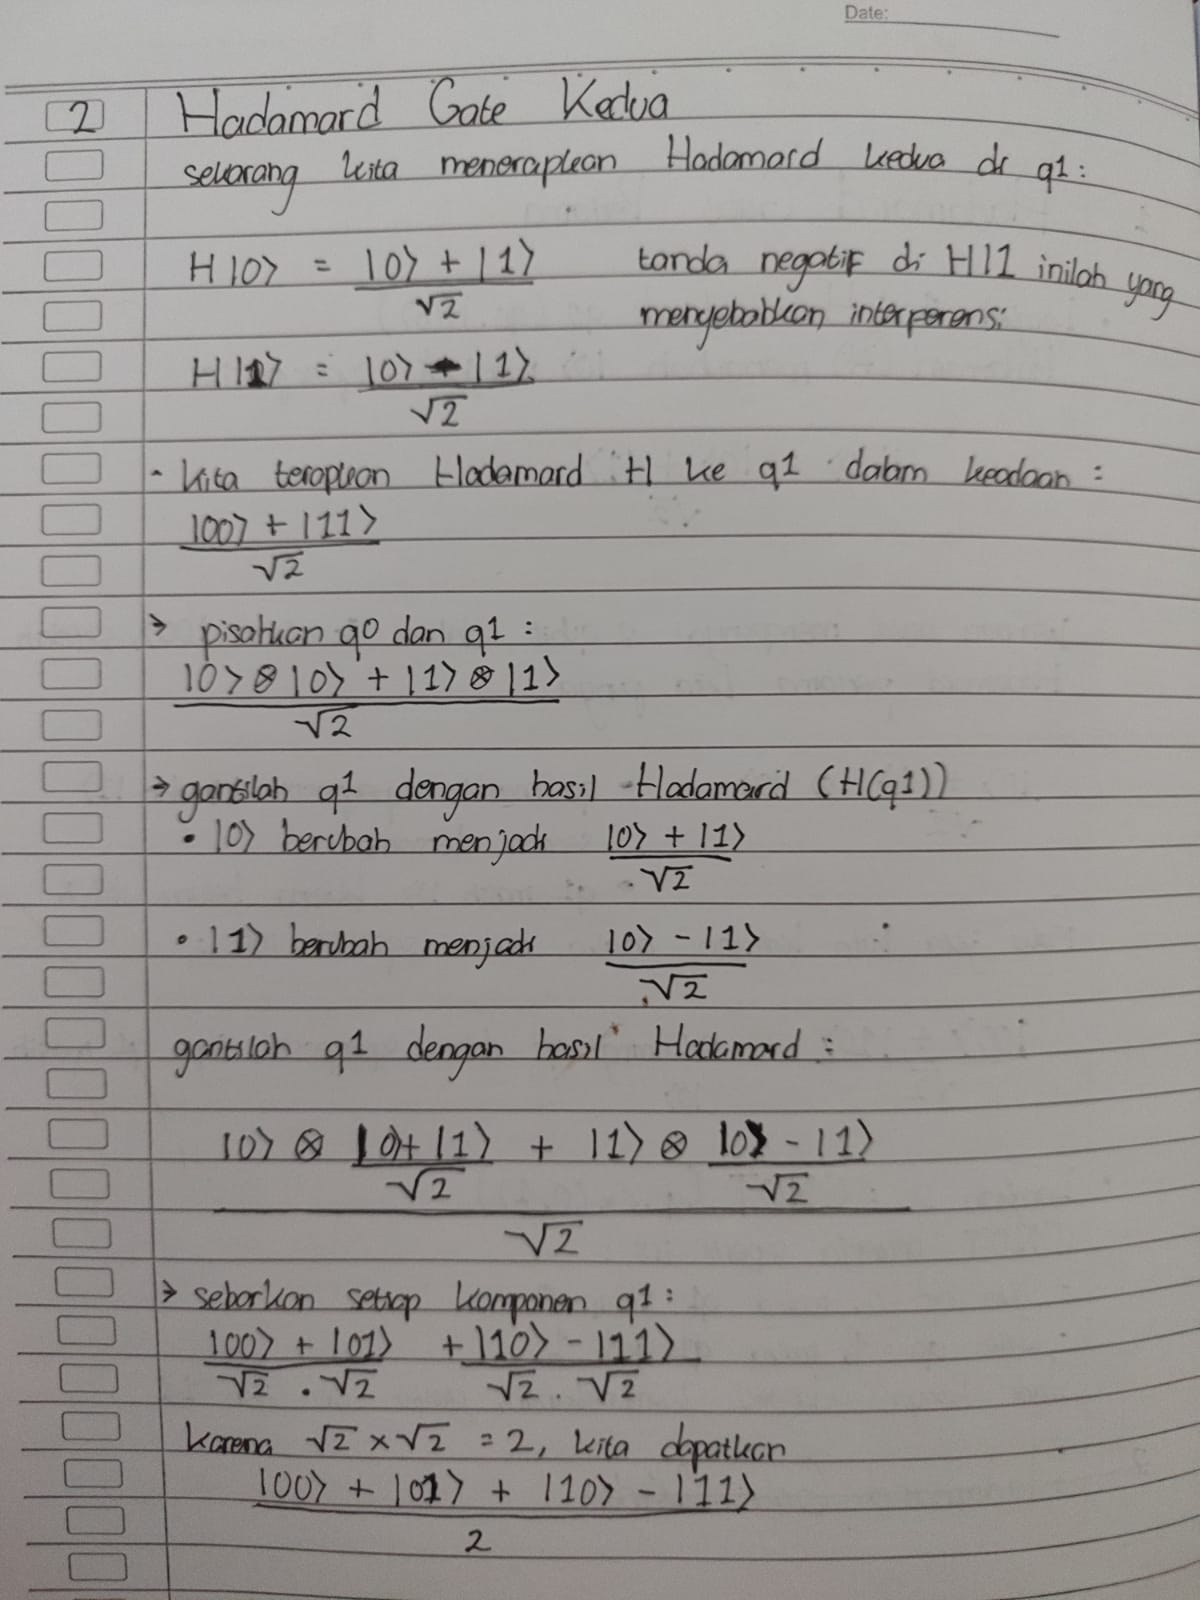 Date:
2 Hadamard Gate Kedua
sekarang kita menerapkan Hadamard kedua di q1:
H|0⟩ = |0⟩ + |1⟩ / √2 tanda negatif di H|1 inilah yang
menyebabkan interferensi
H|1⟩ = |0⟩ - |1⟩ / √2
- kita terapkan Hadamard H ke q1 dalam keadaan :
|00⟩ + |11⟩ / √2
→ pisahkan q0 dan q1 :
|0⟩ ⊗ |0⟩ + |1⟩ ⊗ |1⟩ / √2
→ gantilah q1 dengan hasil Hadamard (H(q1))
• |0⟩ berubah menjadi |0⟩ + |1⟩ / √2
• |1⟩ berubah menjadi |0⟩ - |1⟩ / √2
gantilah q1 dengan hasil Hadamard :
|0⟩ ⊗ |0⟩ + |1⟩ / √2 + |1⟩ ⊗ |0⟩ - |1⟩ / √2
√2
→ sebarkan setiap komponen q1 :
|00⟩ + |01⟩ / √2 . √2 + |10⟩ - |11⟩ / √2 . √2
karena √2 × √2 = 2, kita dapatkan
|00⟩ + |01⟩ + |10⟩ - |11⟩
2